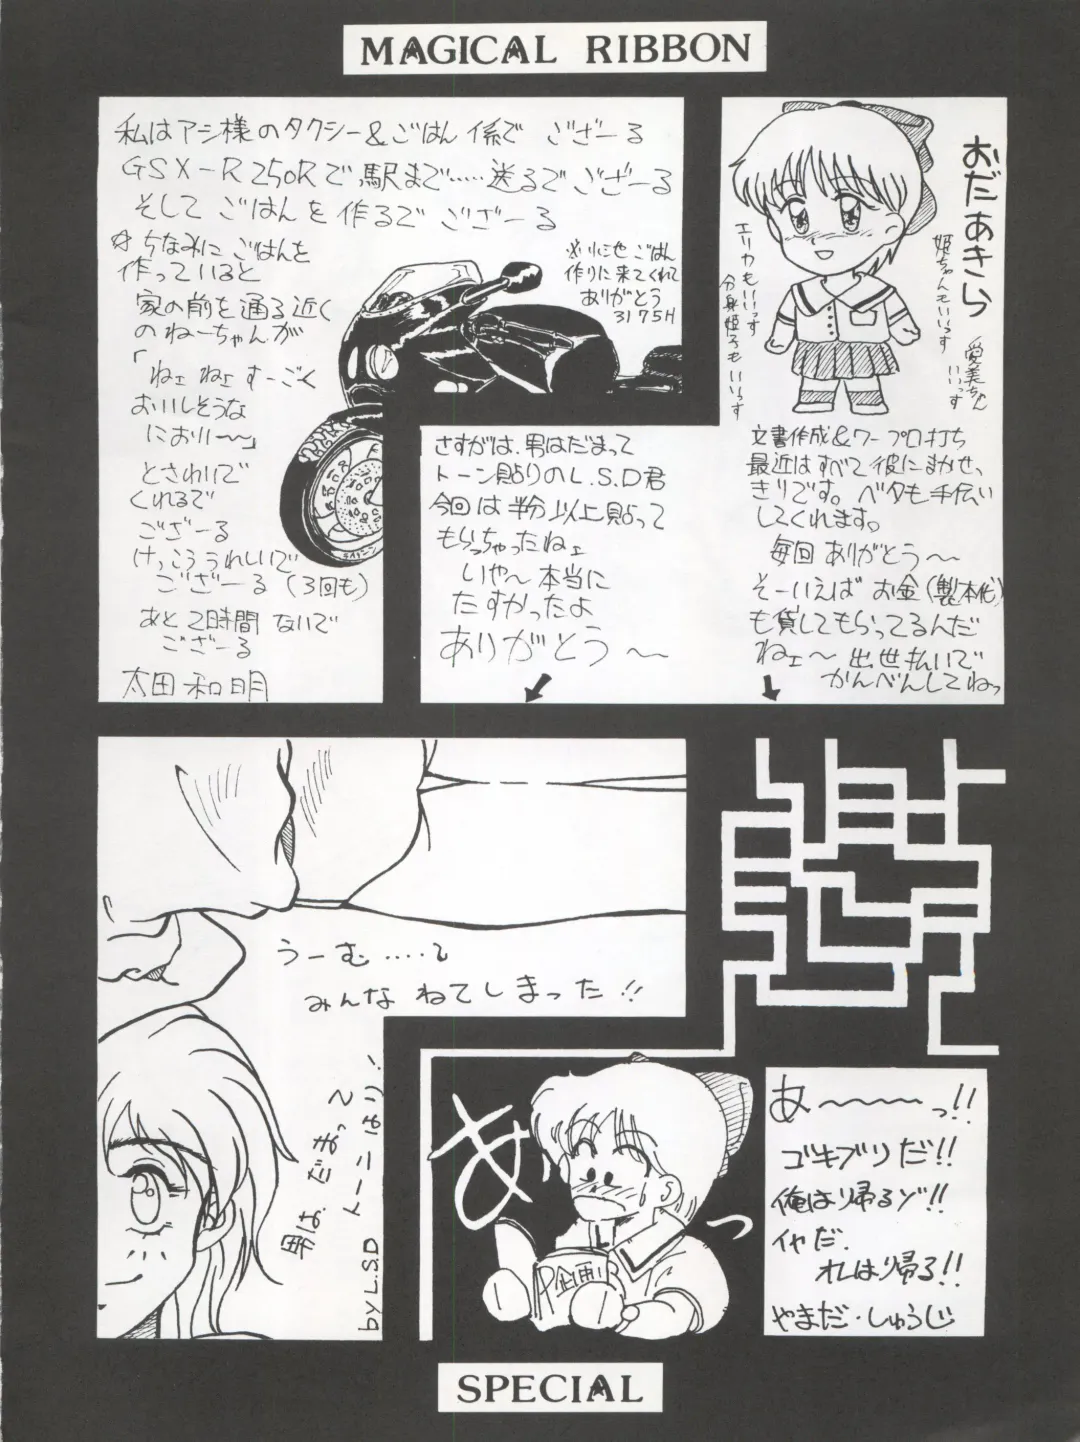 MAGICAL RIBBON
私はアシ様のタクシー&ごはん係で ござーる
GSX-R250Rで駅まで……送るで ござーる
そして ごはんを作るで ござーる
ちなみに ごはんを
作っていると
家の前を通る近く
のねーちゃんが
「ねェ ねェ すーごく
おいしそうな
におい〜」
とさわいで
くれるで
ござーる
けっこううれしいで
ござーる (3回も)
あと2時間 ないで
ござーる
太田和明
ごはん
作りに来てくれて
ありがとう
3175H
おだあきら
姫ちゃんもいいっす
愛美ちゃん
いいっす
エリカもいいっす
分身姫子もいいっす
さすがは、男はだまって
トーン貼りのL.S.D君
今回は半分以上貼って
もらっちゃったねェ
いや〜本当に
たすかったよ
ありがとう〜
文書作成&ワープロ打ち
最近はすべて彼にまかせっ
きりです。ベタも手伝い
してくれます。
毎回ありがとう〜
そーいえば お金(製本代)
も貸してもらってるんだ
ねェ〜 出世払いで
かんべんしてねっ
うーむ……
みんな ねてしまった!!
男は、だまって
トーンはり!
by L.S.D
あっ
P企画
あ〜〜〜〜っ!!
ゴキブリだ!!
俺は帰るゾ!!
イヤだ、
オレは帰る!!
やまだ・しゅうじ
SPECIAL